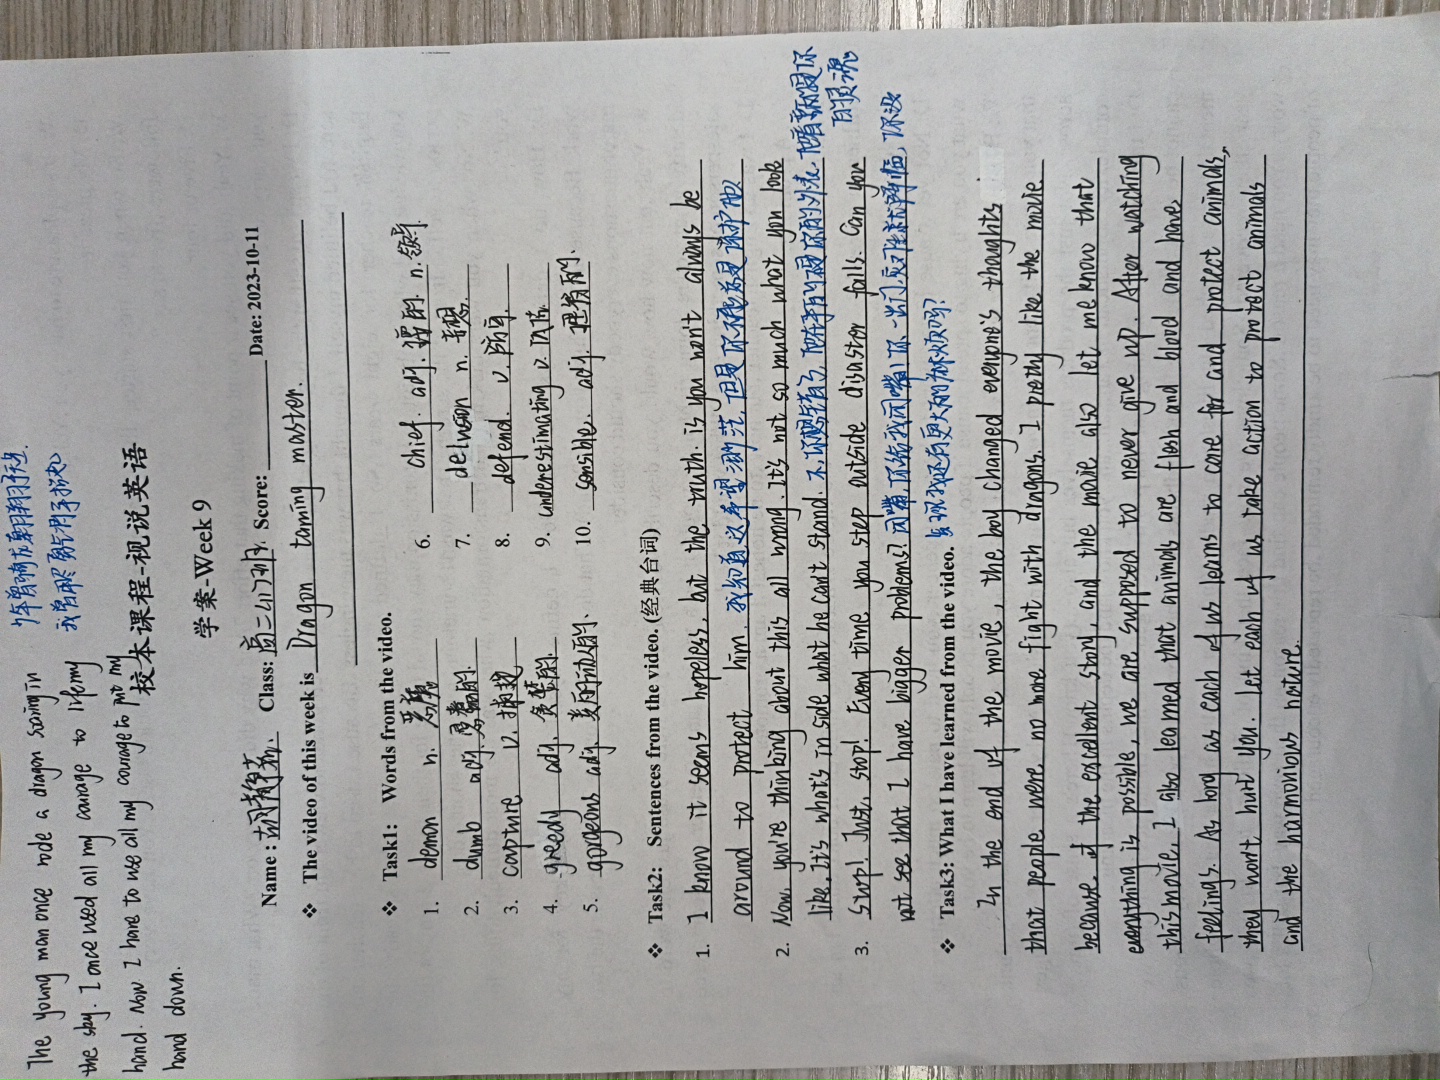 The young man once rode a dragon soaring in
the sky. I once used all my courage to lift my
hand. Now I have to use all my courage to put my
hand down.
少年曾骑龙翱翔于天
我曾用尽勇气抬手
校本课程-视说英语
学案-Week 9
Name: 胡静 Class: 高二(17)班. Score: Date: 2023-10-11
❖ The video of this week is Dragon taming master.
❖ Task1: Words from the video.
1. demon n. 恶魔
2. dumb adj. 愚蠢的.
3. capture v. 捕捉
4. greedy adj. 贪婪的.
5. gorgeous adj. 美丽动人的.
6. chief. adj. 主要的. n. 领导
7. delusion n. 妄想.
8. defend. v. 防守
9. underestimating v. 低估.
10. sensible. adj. 理智的.
❖ Task2: Sentences from the video. (经典台词)
1. I know it seems hopeless, but the truth. is you won't always be
around to protect him. 我知道这希望渺茫, 但是你不能总是保护他
2. Now, you're thinking about this all wrong. It's not so much what you look
like. It's what's in side what he can't stand. 不, 你想错了, 他在乎的不是你的外表, 他看重的是你
的灵魂
3. Stop! Just, stop! Every time you step outside disaster falls. Can you
not see that I have bigger problems? 闭嘴, 你给我闭嘴! 你一出门灾难就降临, 你没
发现我还有更大的麻烦吗?
❖ Task3: What I have learned from the video.
In the end of the movie, the boy changed everyone's thoughts
that people were no more fight with dragons. I pretty like the movie
because of the excellent story, and the movie also let me know that
everything is possible, we are supposed to never give up. After watching
this movie, I also learned that animals are flesh and blood and have
feelings. As long as each of us learns to care for and protect animals,
they won't hurt you. Let each of us take action to protect animals
and the harmonious nature.